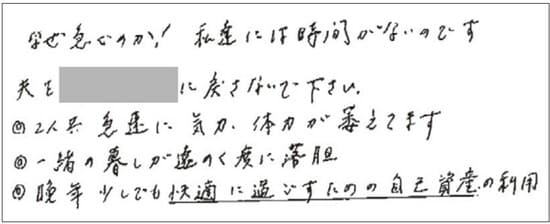 なぜ急ぐのか! 私達には時間がないのです
夫を に戻さないで下さい。
◎2人共 急速に 気力、体力が 萎えてます
◎一緒の暮しが遠のく度に落胆
◎晩年 少しでも快適に過ごすための自己資産の利用